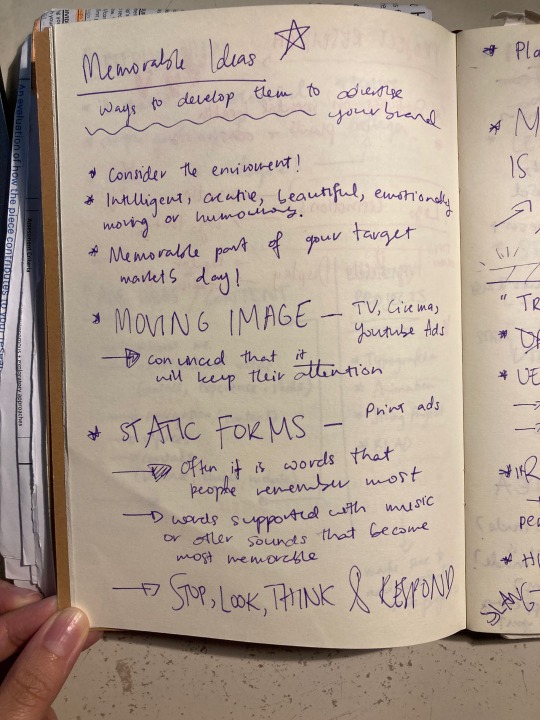 Memorable Ideas
Ways to develop them to advertise
your brand
* Consider the enviroment!
* Intelligent, creative, beautiful, emotionally
moving or humourous.
* Memorable part of your target
markets day!
* MOVING IMAGE — TV, Cinema,
Youtube Ads
→ convinced that it
will keep their attention
* STATIC FORMS — Print ads
→ Often it is words that
people remember most
→ words supported with music
or other sounds that become
most memorable
→ STOP, LOOK, THINK & RESPOND
An evaluation of how the piece contributes to your
* Pla
* M
IS
"TR
* UE
* HU
SLANG